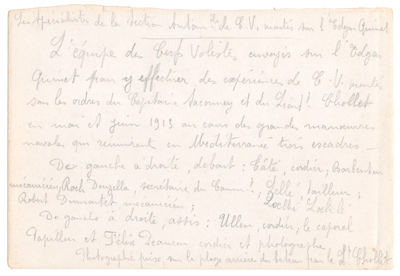 Les Spécialistes de la Section de C.V. montés sur l'Edgar Quinet
L'équipe des Cerfs Volistes envoyés sur l'Edgar
Quinet pour y effectuer des expériences de C.V. montés
sous les ordres du Capitaine Saconney et du Lieut! Chollet
en mai et juin 1913 au cours des grandes manœuvres
navales qui réunirent en Méditerranée trois escadres –
De gauche à droite, debout : cordier,
mécanicien, Roch secrétaire du tailleur ;
Robert mécanicien ;
De gauche à droite, assis : cordier, le caporal
Papillon et Félix cordier et photographe
Photographie prise sur la plage arrière du bateau par le Lt Chollet